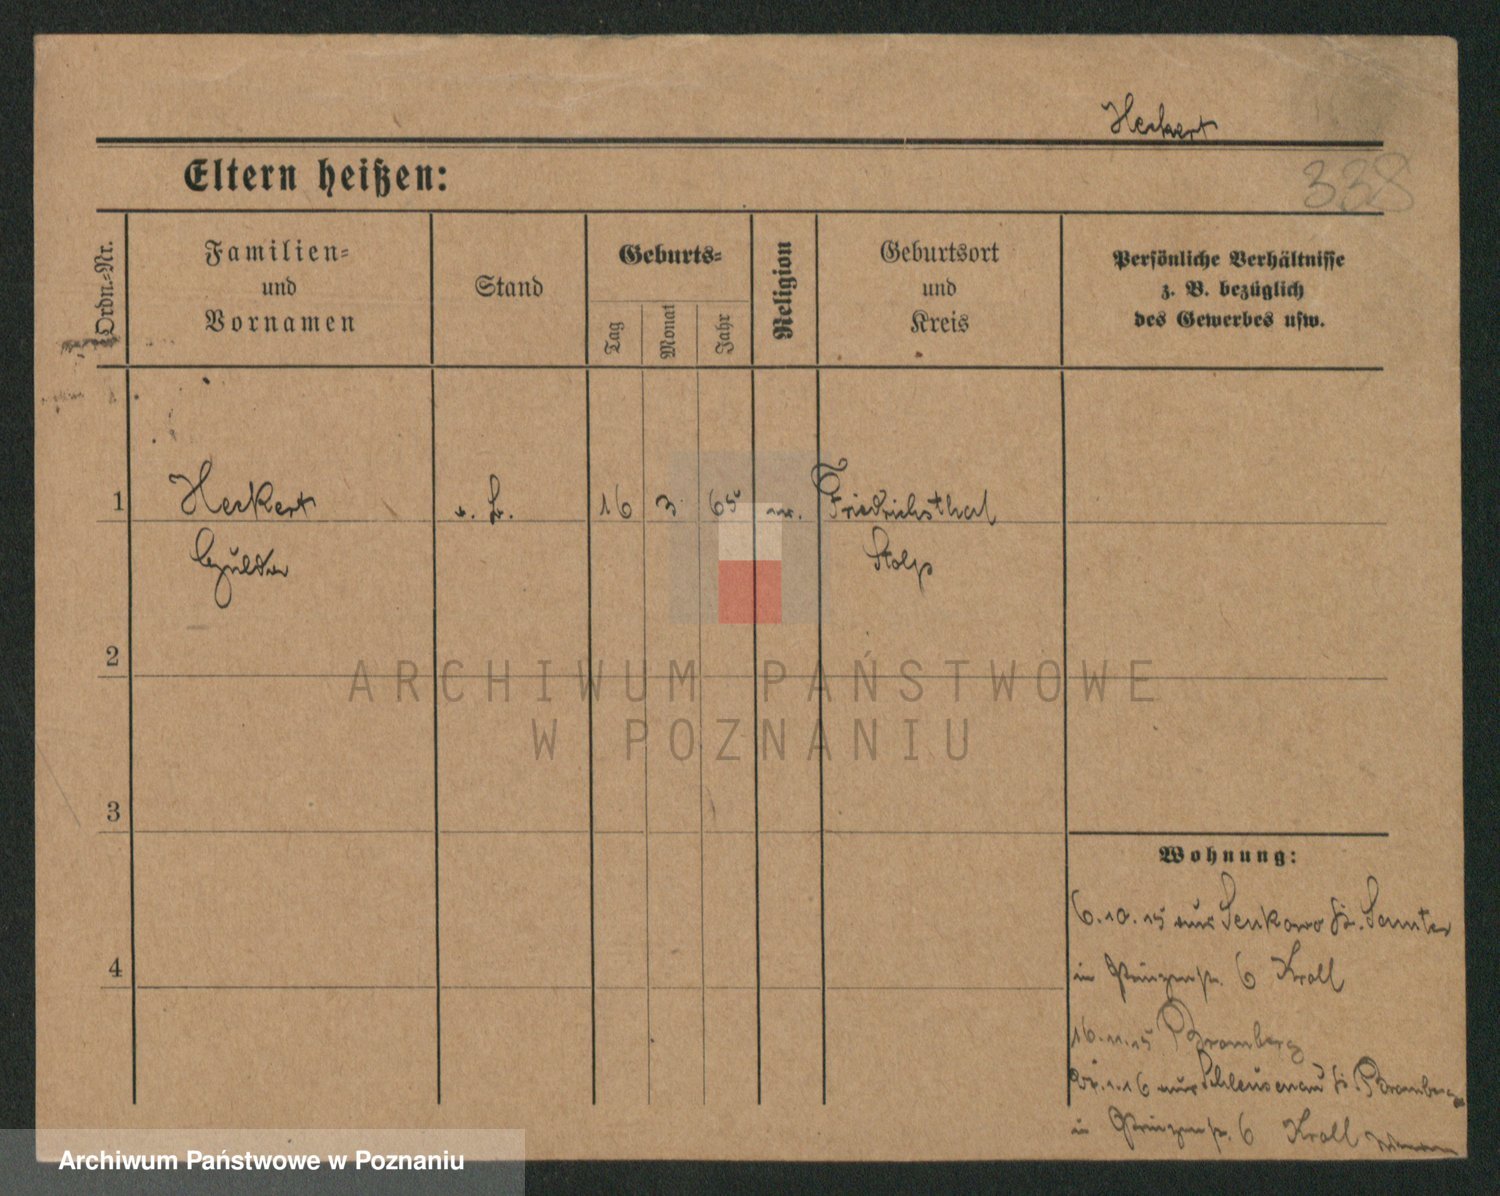 Heckert
338
Eltern heißen:
Ordn.-Nr.
Familien-
und
Vornamen
Stand
Geburts-
Tag
Monat
Jahr
Religion
Geburtsort
und
Kreis
Persönliche Verhältnisse
z. B. bezüglich
des Gewerbes usw.
1 Heckert 16 3 65 Friedrichsthal
Stolp
2
3
4
Wohnung:
6.10.15 aus Senkowo Kr. Samter
in Prinzenstr. 6 Kroll
16.11.15 Bromberg
1.16 aus Schleusenau Kr. Bromberg
in Prinzenstr. 6 Kroll
ARCHIWUM PAŃSTWOWE
W POZNANIU
Archiwum Państwowe w Poznaniu